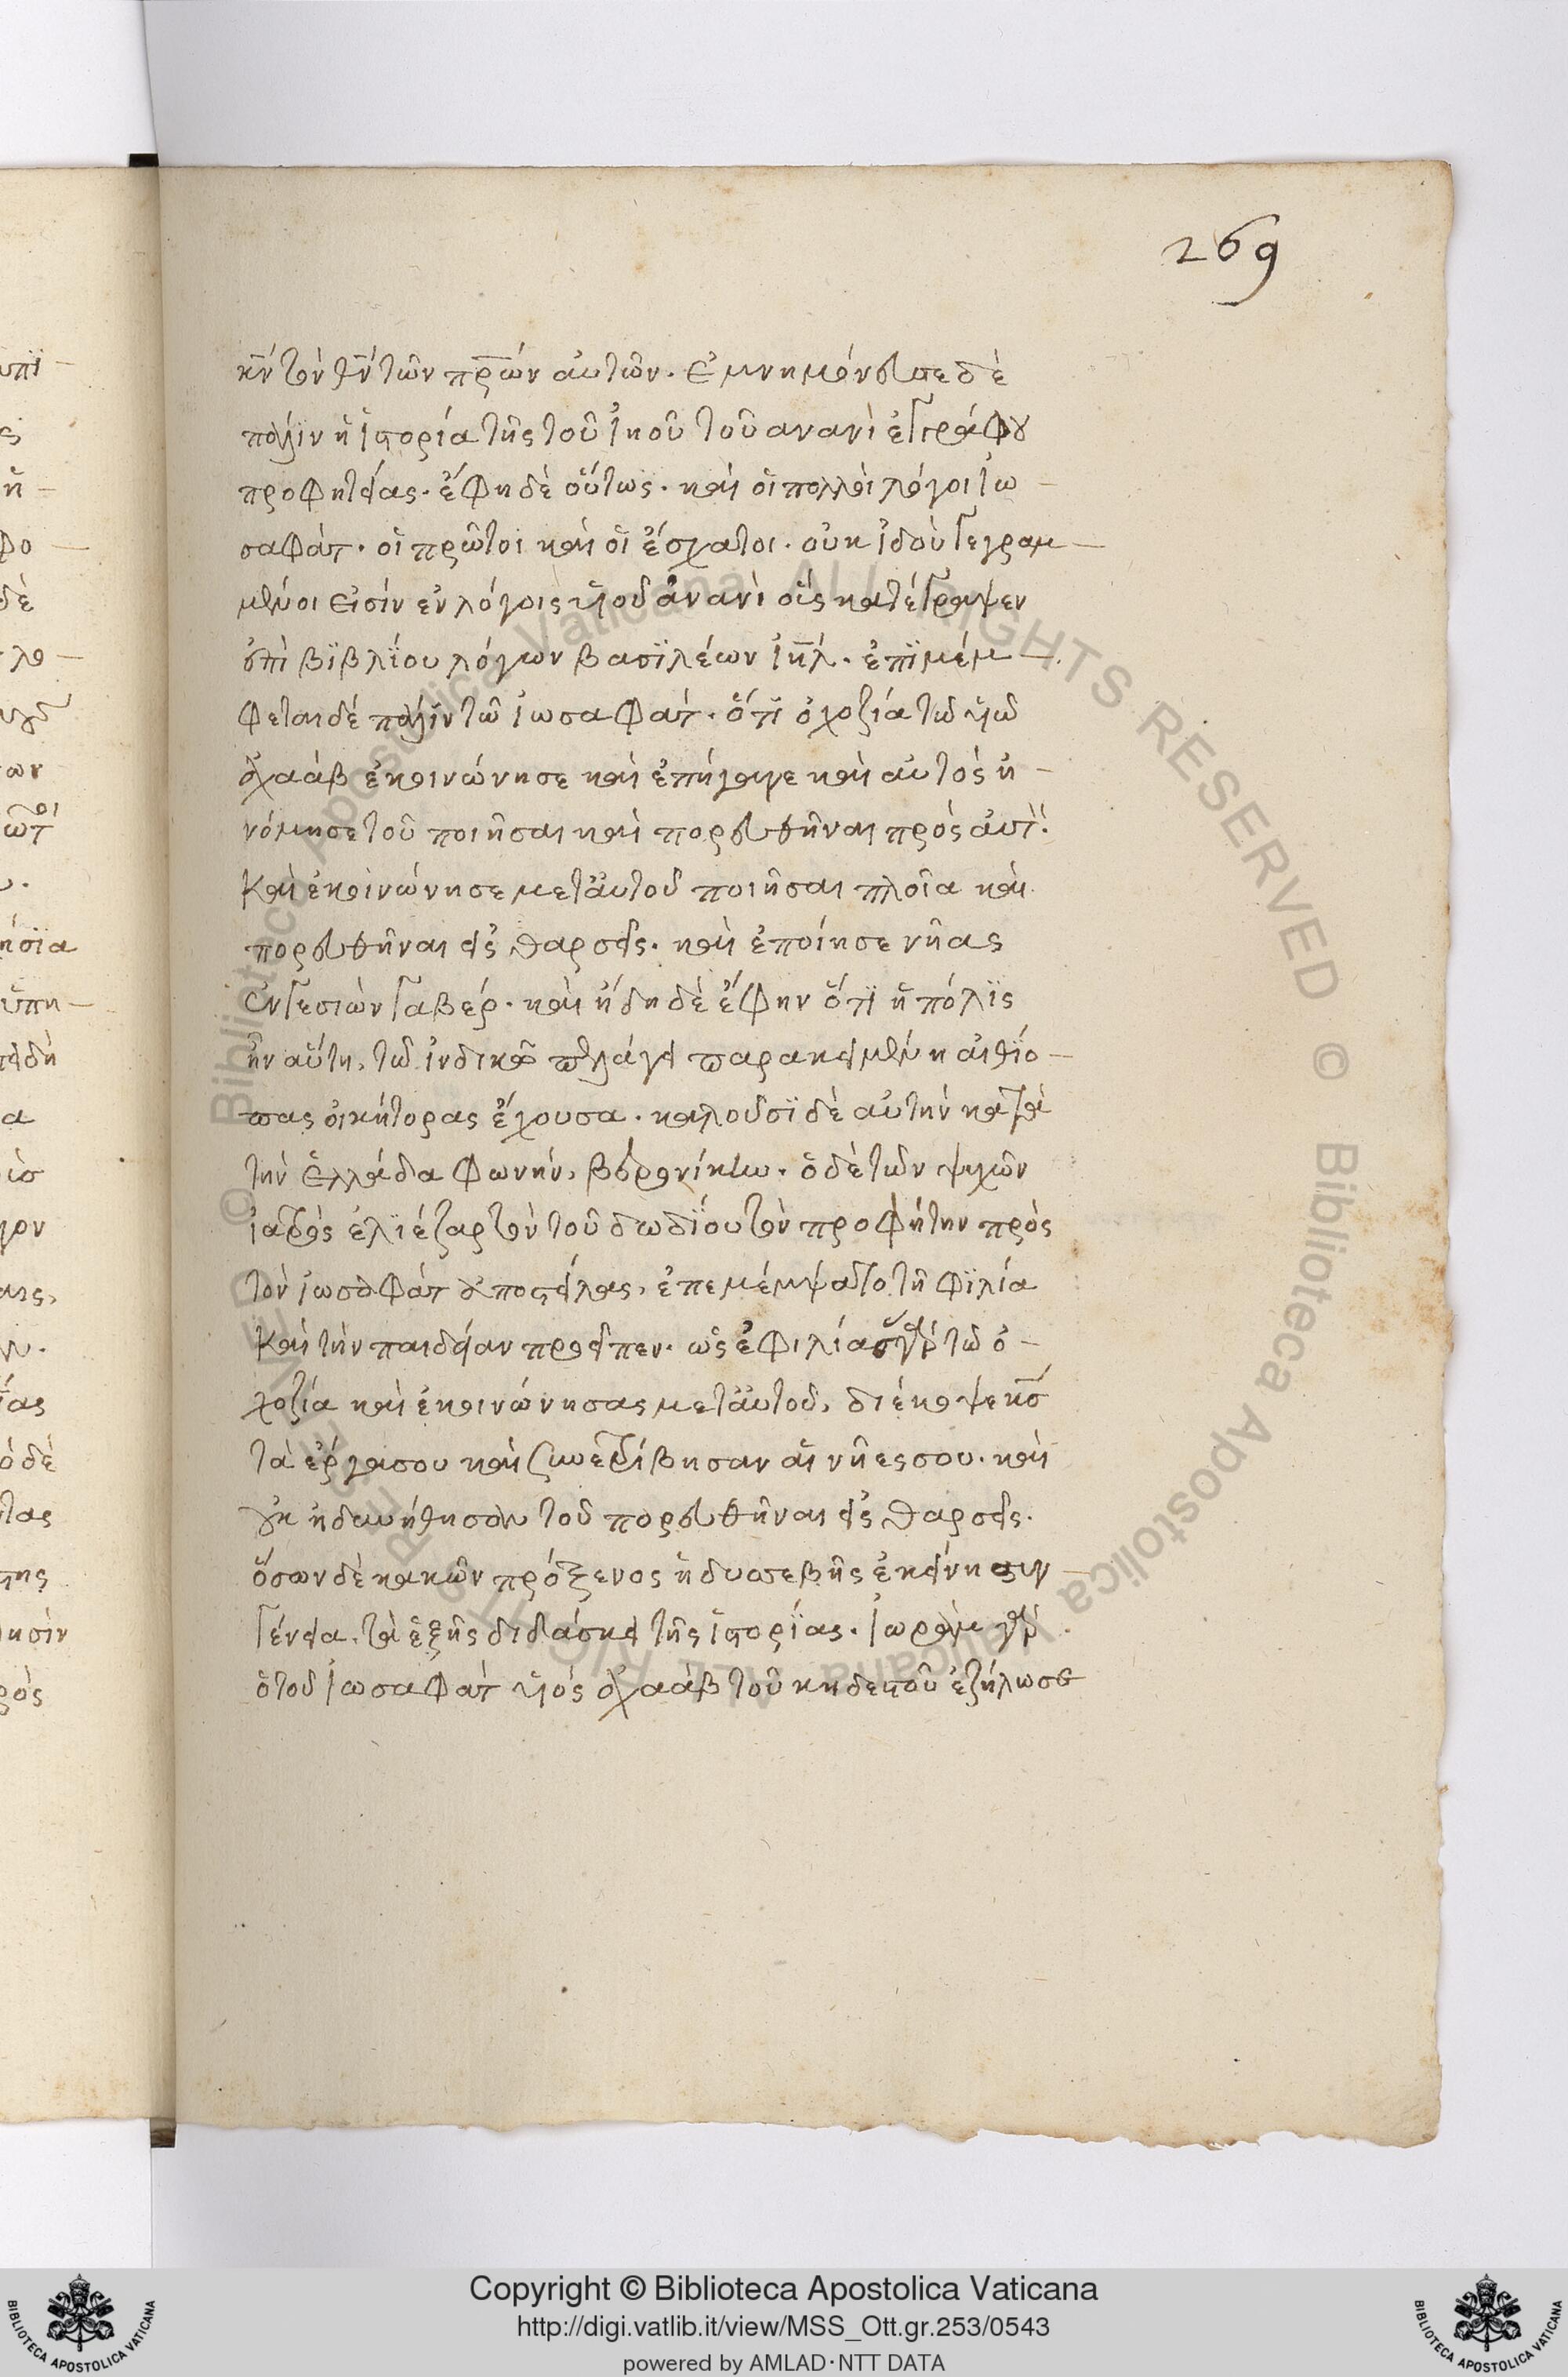 269
κν̄ τὸν θν̄ τῶν πρ̄ων αὐτῶν. ἐμνημόνευσε δὲ
πάλιν ἡ ἱστορία τῆς τοῦ ἰηοῦ τοῦ ανανὶ ἐγγράφου
προφητείας. ἔφη δὲ οὕτως. καὶ οἱ πολλοὶ λόγοι ἰω
σαφάτ. οἱ πρῶτοι καὶ οἱ ἔσχατοι. οὐκ ἰδοὺ γεγραμ
μένοι εἰσίν ἐν λόγοις ἰηοῦ ἀνανὶ οἷς κατέγραψεν
ἐπὶ βϊβλΐου λόγων βασϊλέων ἰη̄λ. ἐπϊμέμ
φεται δέ πάλιν τῶ ἰωσαφάτ. ὅτϊ ὀχοζία τῶ υἱῶ
ἀχαὰβ ἐκοινώνησε καὶ ἐπήγαγε καὶ αὐτὸς ἠ
νόμησε τοῦ ποιῆσαι καὶ πορευθῆναι πρὸς αὐτόν.
Καὶ ἐκοινώνησε μετ᾽ αὐτοῦ ποιῆσαι πλοῖα καὶ
πορευθῆναι εἰς θαρσεῖς. καὶ ἐποίησε νῆας
ἐν γεσιὼν γαβέρ. καὶ ἤδη δὲ ἔφην ὅτϊ ἡ πόλϊς
ἦν αὕτη, τῶ ἰνδικῶ πελάγει παρακειμένη αἰθίο
πας οἰκήτορας ἔχουσα. καλοῦσϊ δὲ αὐτὴν κατὰ
τὴν ἑλλάδα φωνήν, βερονίκην. ὁ δὲ τῶν ψυχῶν
ἰατρὸς ἐλιέζαρ τὸν τοῦ δωδΐου τὸν προφήτην πρὸς
τὸν ἰωσαφάτ ἀποστείλας, ἐπεμέμψατο τῆ φϊλία
Καὶ τὴν παιδείαν προεῖπεν. ὡς ἐφιλίασας γὰρ τῶ ὀ
χοζία καὶ ἐκοινώνησας μετ᾽ αὐτοῦ, διέκοψε κς̄
τὰ ἔργα σου καὶ συνετρίβησαν αἱ νῆες σου. καὶ
οὐκ ἠδυνήθησαν τοῦ πορευθῆναι εἰς θαρσεῖς.
ὅσων δὲ κακῶν πρόξενος ἡ δυσσεβὴς ἐκείνη συγ
γένεια, τὰ ἑξῆς διδάσκει τῆς ἱστορΐας. ἰωρὰμ γὰρ
ὁ τοῦ ἰωσαφάτ υἱὸς ἀχαὰβ τοῦ κηδεστοῦ ἐζήλωσε
Copyright © Biblioteca Apostolica Vaticana
http://digi.vatlib.it/view/MSS_Ott.gr.253/0543
powered by AMLAD·NTT DATA